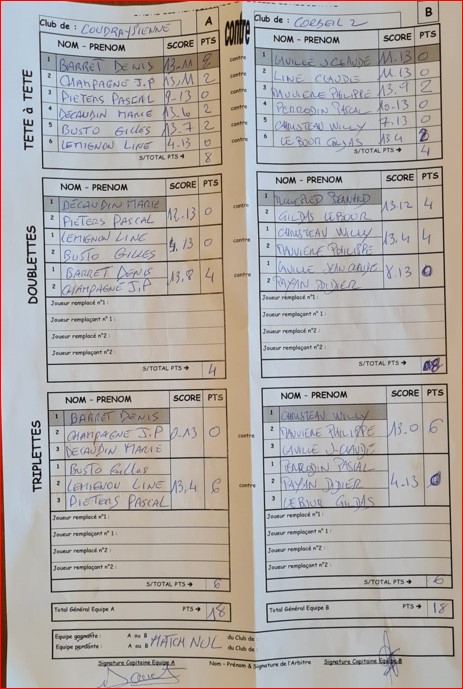 Club de : COUDRAYSIENNE A
contre
Club de : CORBEIL 2 B
TETE à TETE
NOM - PRENOM SCORE PTS
1 BARRET DENIS 13-11 2
2 CHAMPAGNE J.P 13,11 2
3 PIETERS PASCAL 9-13 0
4 DECAUDIN MARIE 13.6 2
5 BUSTO GILLES 13-7 2
6 LEMIGNON LINE 4-13 0
S/TOTAL PTS → 8
contre
contre
contre
contre
contre
contre
NOM - PRENOM SCORE PTS
1 LAVILLE J CLAUDE 11.13 0
2 LINE CLAUDIE 11.13 0
3 PHILIPPE 13.9 2
4 PERRODIN PASCAL 10-13 0
5 WILLY 7.13 0
6 LE BOUR GILDAS 13.4 2
S/TOTAL PTS → 4
DOUBLETTES
NOM - PRENOM SCORE PTS
1 DECAUDIN MARIE
2 PIETERS PASCAL 12.13 0
1 LEMIGNON LINE
2 BUSTO GILLES 4.13 0
1 BARRET DENIS
2 CHAMPAGNE J.P 13,8 4
Joueur remplacé n°1 :
Joueur remplaçant n°1 :
Joueur remplacé n°2 :
Joueur remplaçant n°2 :
S/TOTAL PTS → 4
contre
contre
contre
NOM - PRENOM SCORE PTS
1 BERNARD
2 GILDAS LEBOUR 13.12 4
1 WILLY
2 PHILIPPE 13.4 4
1 LAVILLE JEAN CLAUDE
2 DIDIER 8.13 0
Joueur remplacé n°1 :
Joueur remplaçant n°1 :
Joueur remplacé n°2 :
Joueur remplaçant n°2 :
S/TOTAL PTS → 8
TRIPLETTES
NOM - PRENOM SCORE PTS
1 BARRET DENIS
2 CHAMPAGNE J.P 0-13 0
3 DECAUDIN MARIE
1 BUSTO Gilles
2 LEMIGNON LINE 13,4 6
3 PIETERS PASCAL
Joueur remplacé n°1 :
Joueur remplaçant n°1 :
Joueur remplacé n°2 :
Joueur remplaçant n°2 :
S/TOTAL PTS → 6
contre
contre
NOM - PRENOM SCORE PTS
1 WILLY
2 PHILIPPE 13.0 6
3 LAVILLE J-CLAUDE
1 PERRODIN PASCAL
2 DIDIER 4.13 0
3 LEBOUR GILDAS
Joueur remplacé n°1 :
Joueur remplaçant n°1 :
Joueur remplacé n°2 :
Joueur remplaçant n°2 :
S/TOTAL PTS → 6
Total Général Equipe A PTS → 18
Total Général Equipe B PTS → 18
Equipe gagnante : A ou B MATCH NUL du Club de :
Equipe perdante : A ou B du Club de :
Signature Capitaine Equipe A Nom - Prénom & Signature de l'Arbitre Signature Capitaine Equipe B